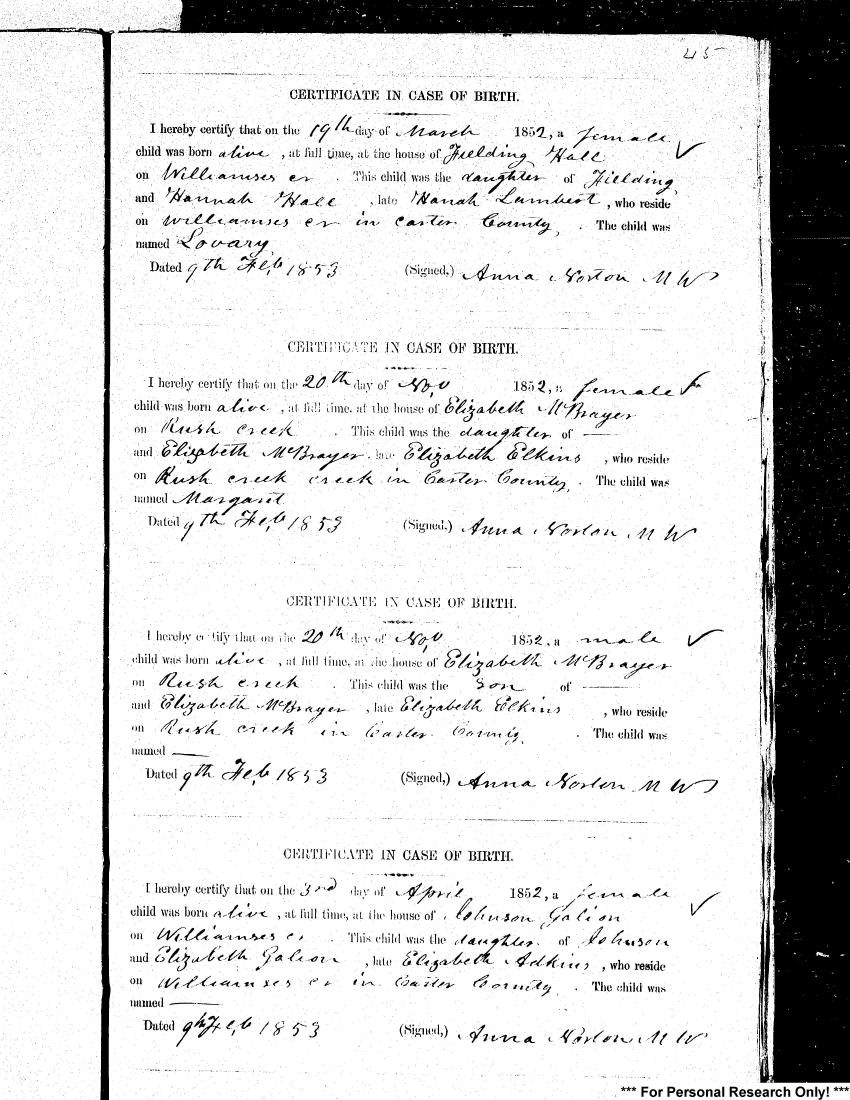 45
CERTIFICATE IN CASE OF BIRTH.
I hereby certify that on the 19th day of March 1852, a female
child was born alive, at full time, at the house of Fielding Hall
on Williamses cr. This child was the daughter of Fielding
and Hannah Hall, late Hanah Lambert, who reside
on Williamses cr in Carter County,. The child was
named Lovary
Dated 9th Feb 1853 (Signed,) Anna Norton M W
CERTIFICATE IN CASE OF BIRTH.
I hereby certify that on the 20th day of Nov 1852, a female
child was born alive, at full time, at the house of Elizabeth McBrayer
on Rush creek. This child was the daughter of —
and Elizabeth McBrayer, late Elizabeth Elkins, who reside
on Rush creek creek in Carter County,. The child was
named Margaret
Dated 9th Feb 1853 (Signed,) Anna Norton M W
CERTIFICATE IN CASE OF BIRTH.
I hereby certify that on the 20th day of Nov 1852, a male
child was born alive, at full time, at the house of Elizabeth McBrayer
on Rush creek. This child was the Son of —
and Elizabeth McBrayer, late Elizabeth Elkins, who reside
on Rush creek in Carter County,. The child was
named —
Dated 9th Feb 1853 (Signed,) Anna Norton M W
CERTIFICATE IN CASE OF BIRTH.
I hereby certify that on the 3rd day of April 1852, a female
child was born alive, at full time, at the house of Johnson Galion
on Williamses cr. This child was the daughter of Johnson
and Elizabeth Galion, late Elizabeth Adkins, who reside
on Williamses cr in Carter County,. The child was
named —
Dated 9th Feb 1853 (Signed,) Anna Norton M W
*** For Personal Research Only! ***